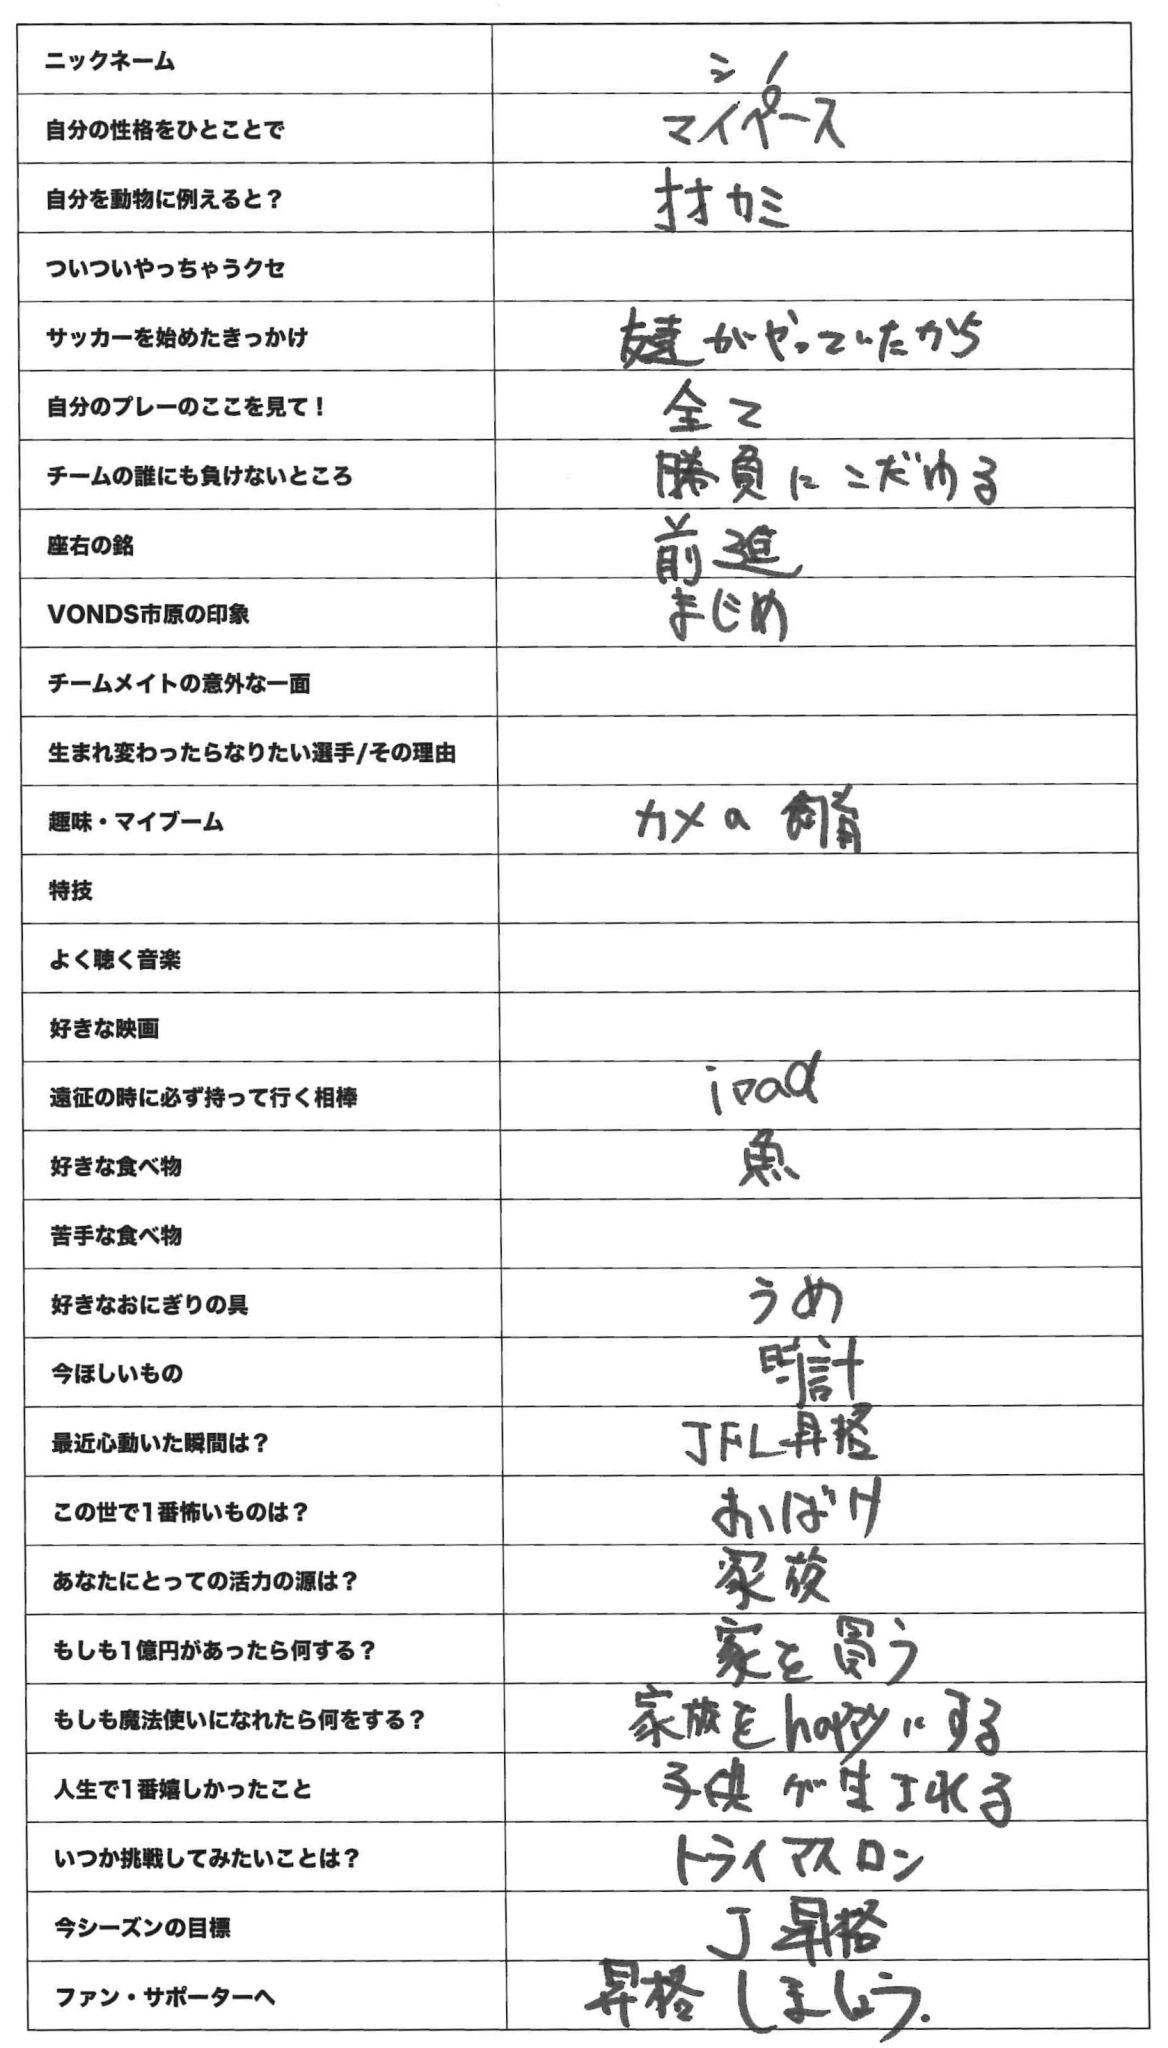 ニックネーム シノ
自分の性格をひとことで マイペース
自分を動物に例えると？ オオカミ
ついついやっちゃうクセ
サッカーを始めたきっかけ 友達がやっていたから
自分のプレーのここを見て！ 全て
チームの誰にも負けないところ 勝負にこだわる
座右の銘 前進
VONDS市原の印象 まじめ
チームメイトの意外な一面
生まれ変わったらなりたい選手/その理由
趣味・マイブーム カメの飼育
特技
よく聴く音楽
好きな映画
遠征の時に必ず持って行く相棒 ipad
好きな食べ物 魚
苦手な食べ物
好きなおにぎりの具 うめ
今ほしいもの 時計
最近心動いた瞬間は？ JFL昇格
この世で1番怖いものは？ おばけ
あなたにとっての活力の源は？ 家族
もしも1億円があったら何する？ 家を買う
もしも魔法使いになれたら何をする？ 家族をhappyにする
人生で1番嬉しかったこと 子供が生まれる
いつか挑戦してみたいことは？ トライアスロン
今シーズンの目標 J昇格
ファン・サポーターへ 昇格しましょう.